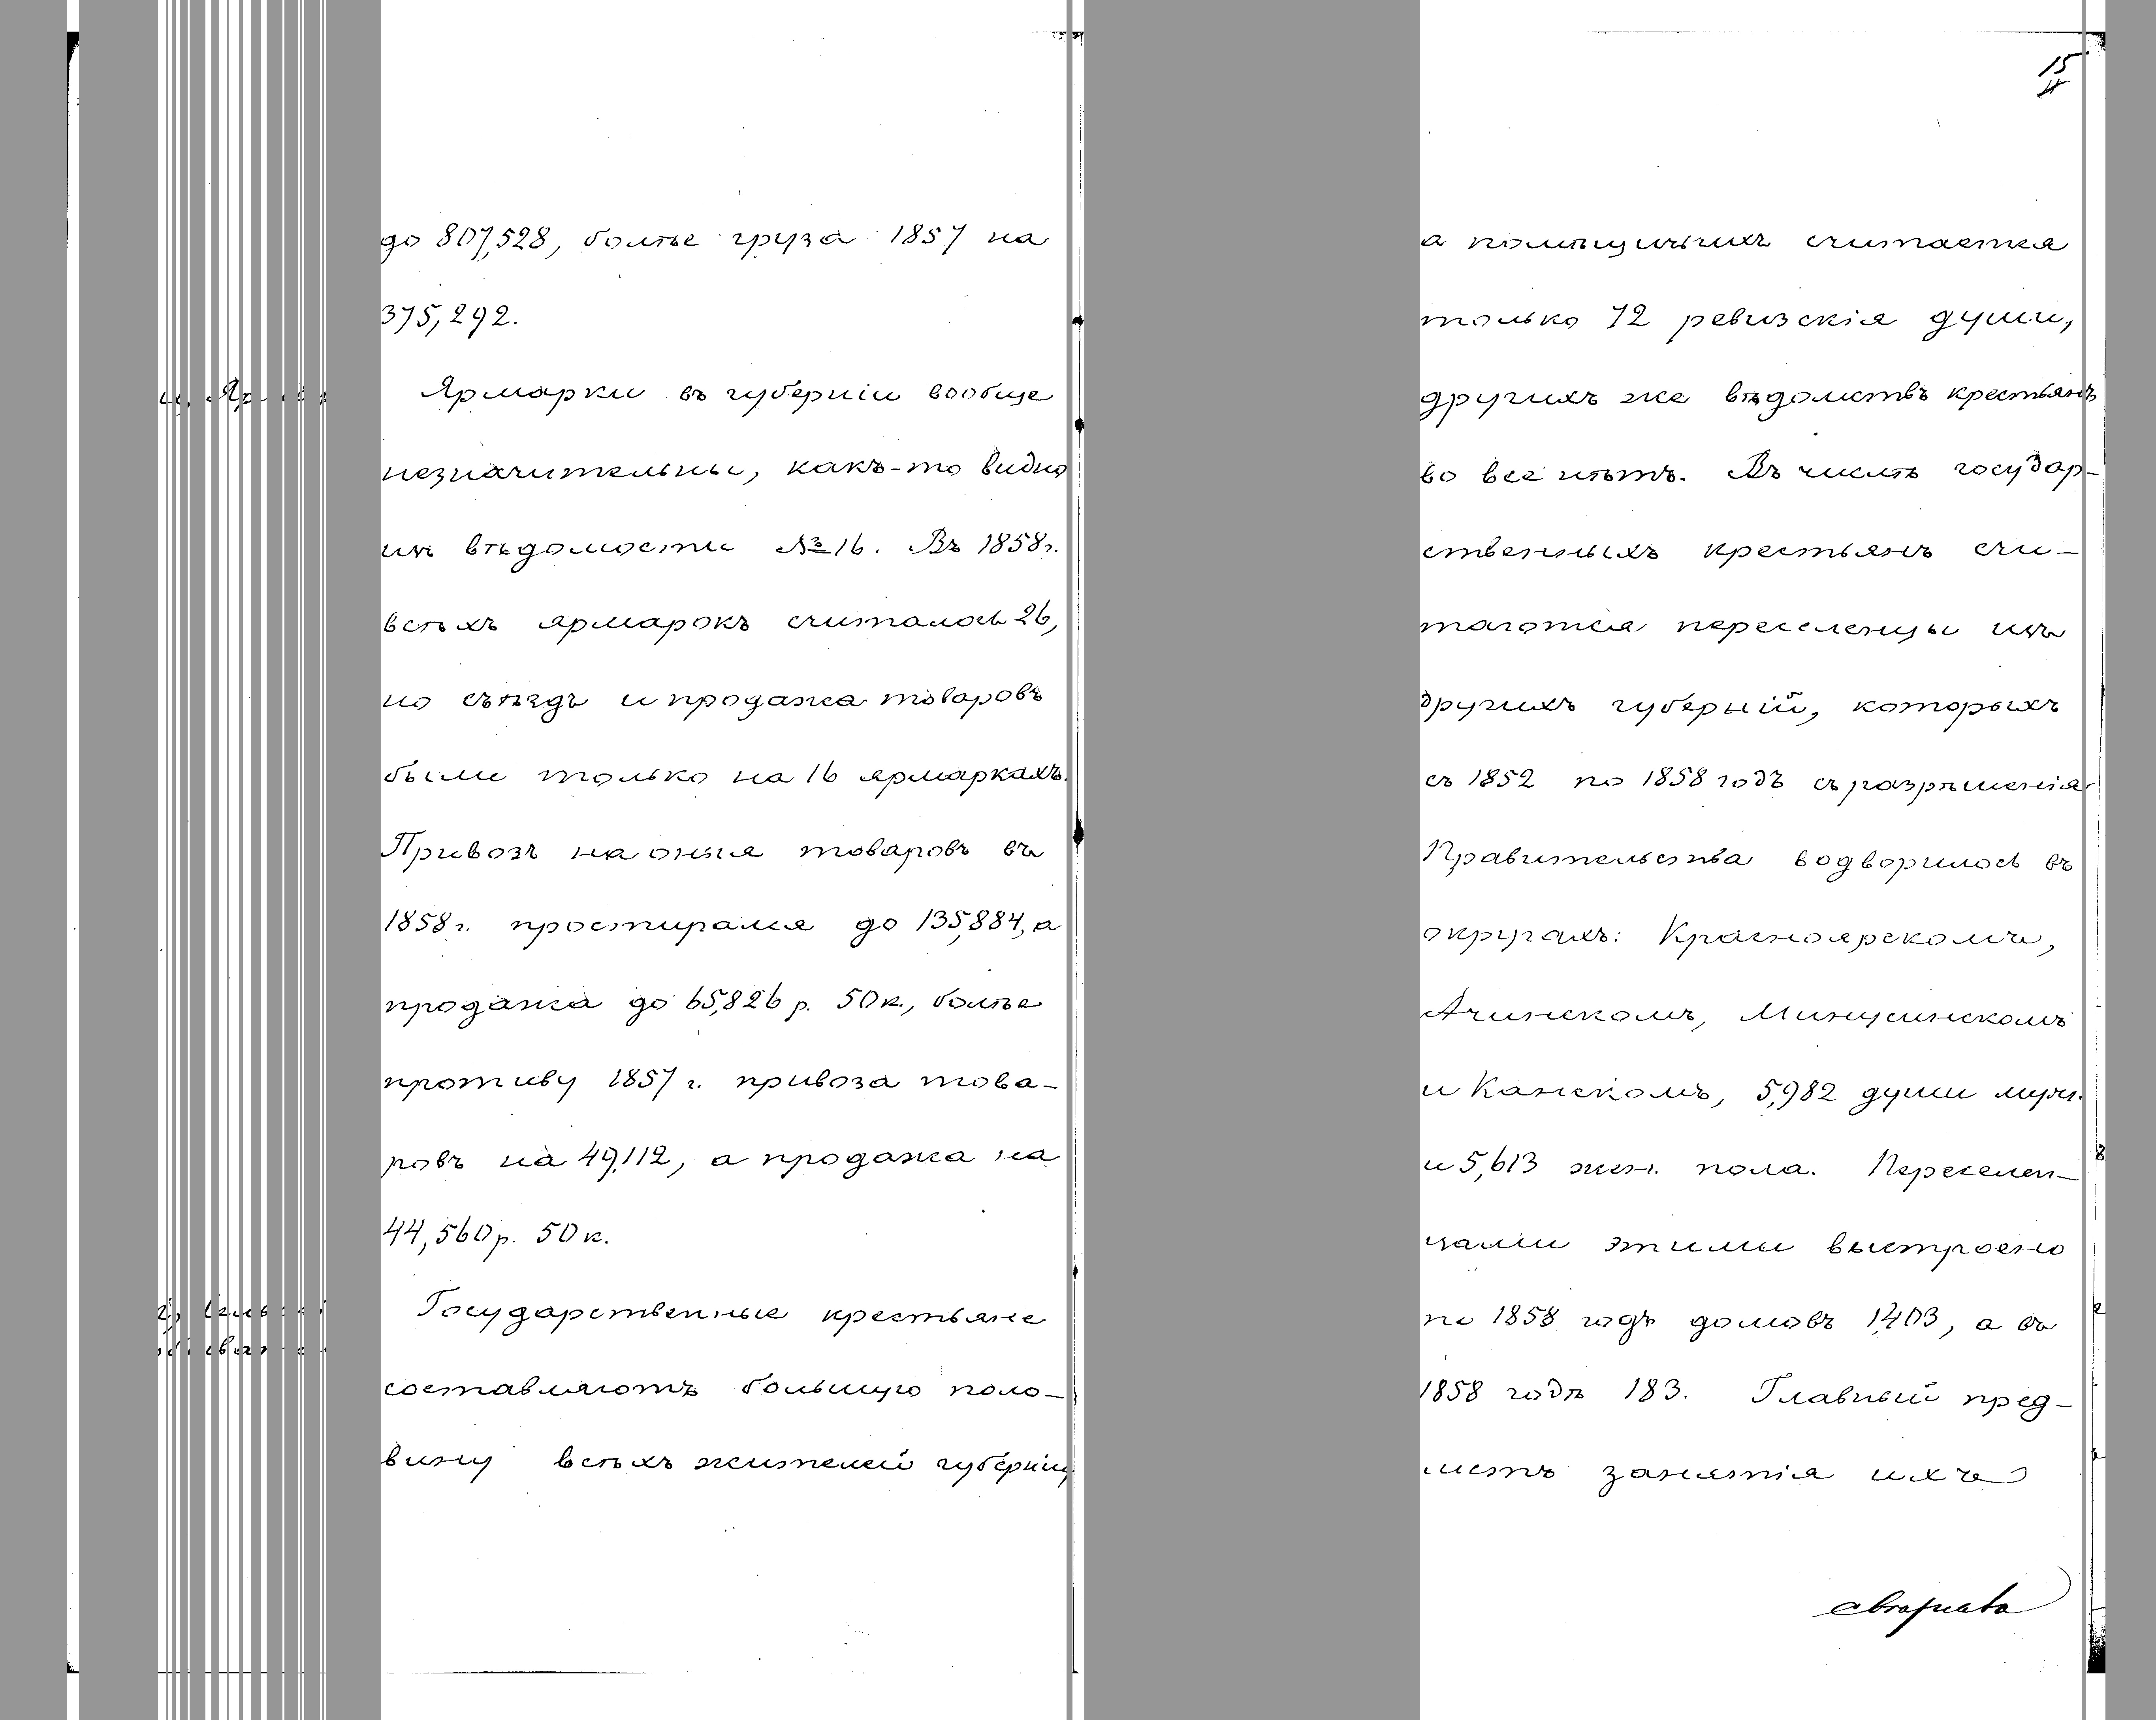 до 807,528, болѣе груза 1857 на
375,292.
Ярмарки въ губерніи вообще
незначительны, какъ-то видно
изъ вѣдомости № 16. Въ 1858 г.
всѣхъ ярмарокъ считалось 26,
но съѣздъ и продажа товаровъ
были только на 16 ярмаркахъ.
Привозъ на оныя товаровъ въ
1858 г. простирался до 135,884, а
продажа до 65,826 р. 50 к., болѣе
противу 1857 г. привоза това-
ровъ на 49,112, а продажа на
44,560 р. 50 к.
Государственные крестьяне
составляютъ большую поло-
вину всѣхъ жителей губерніи,
15
а помѣщичьихъ считается
только 72 ревизскія души,
другихъ же вѣдомствъ крестьянъ
во все нѣтъ. Въ числѣ государ-
ственныхъ крестьянъ счи-
таются переселенцы изъ
другихъ губерній, которыхъ
съ 1852 по 1858 годъ съ разрѣшенія
Правительства водворилось въ
округахъ: Красноярскомъ,
Ачинскомъ, Минусинскомъ
и Канскомъ, 5,982 души муж.
и 5,613 жен. пола. Переселен-
цами этими выстроено
по 1858 годъ домовъ 1,403, а въ
1858 годѣ 183. Главный пред-
метъ занятія ихъ